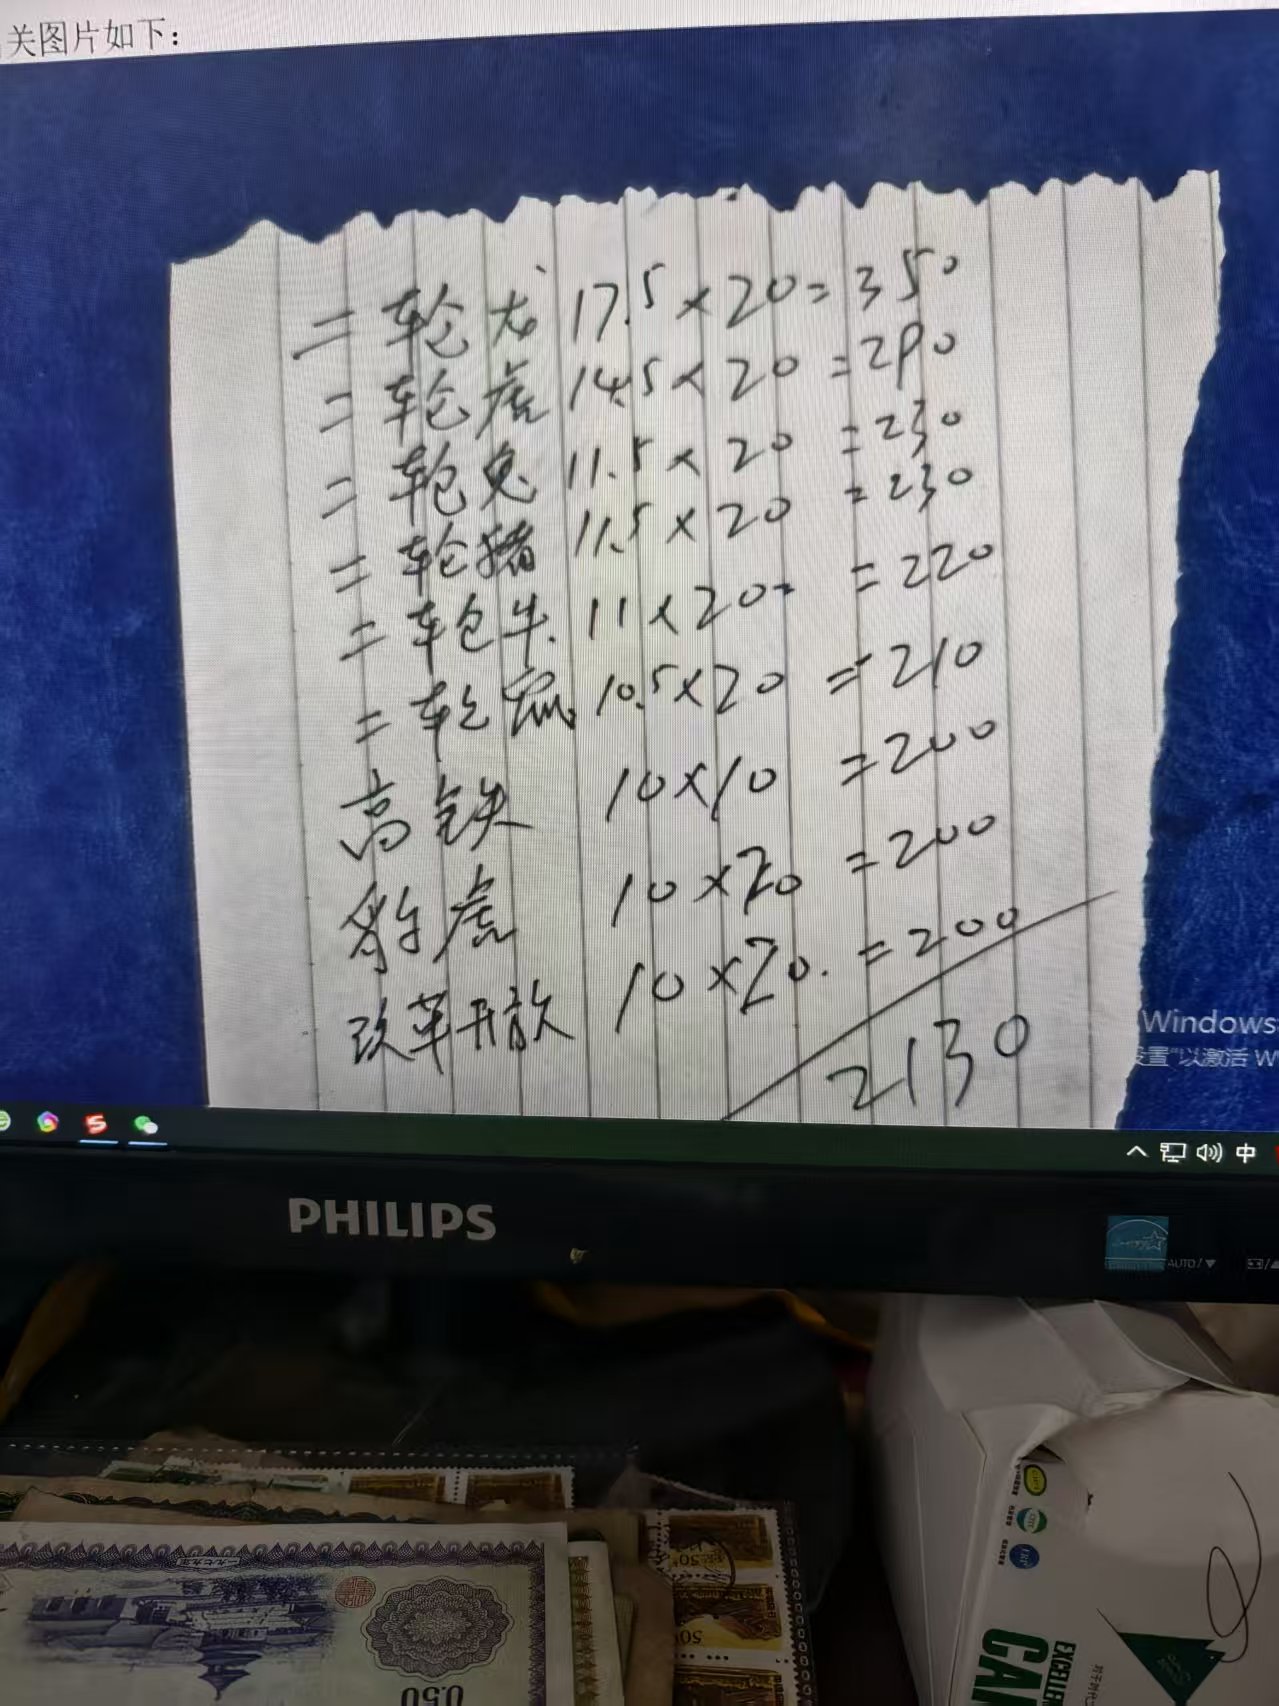 关图片如下：
二轮龙 17.5×20=350
二轮虎 14.5×20=290
二轮兔 11.5×20=230
二轮猪 11.5×20=230
二轮牛. 11×20 =220
二轮鼠 10.5×20=210
高铁 10×10=200
豹虎 10×20=200
改革开放 10×20.=200
2130
Windows
设置"以激活 W
中
PHILIPS
AUTO/▼
一九七九年
0.50
50
50
EXCELLE
CAR